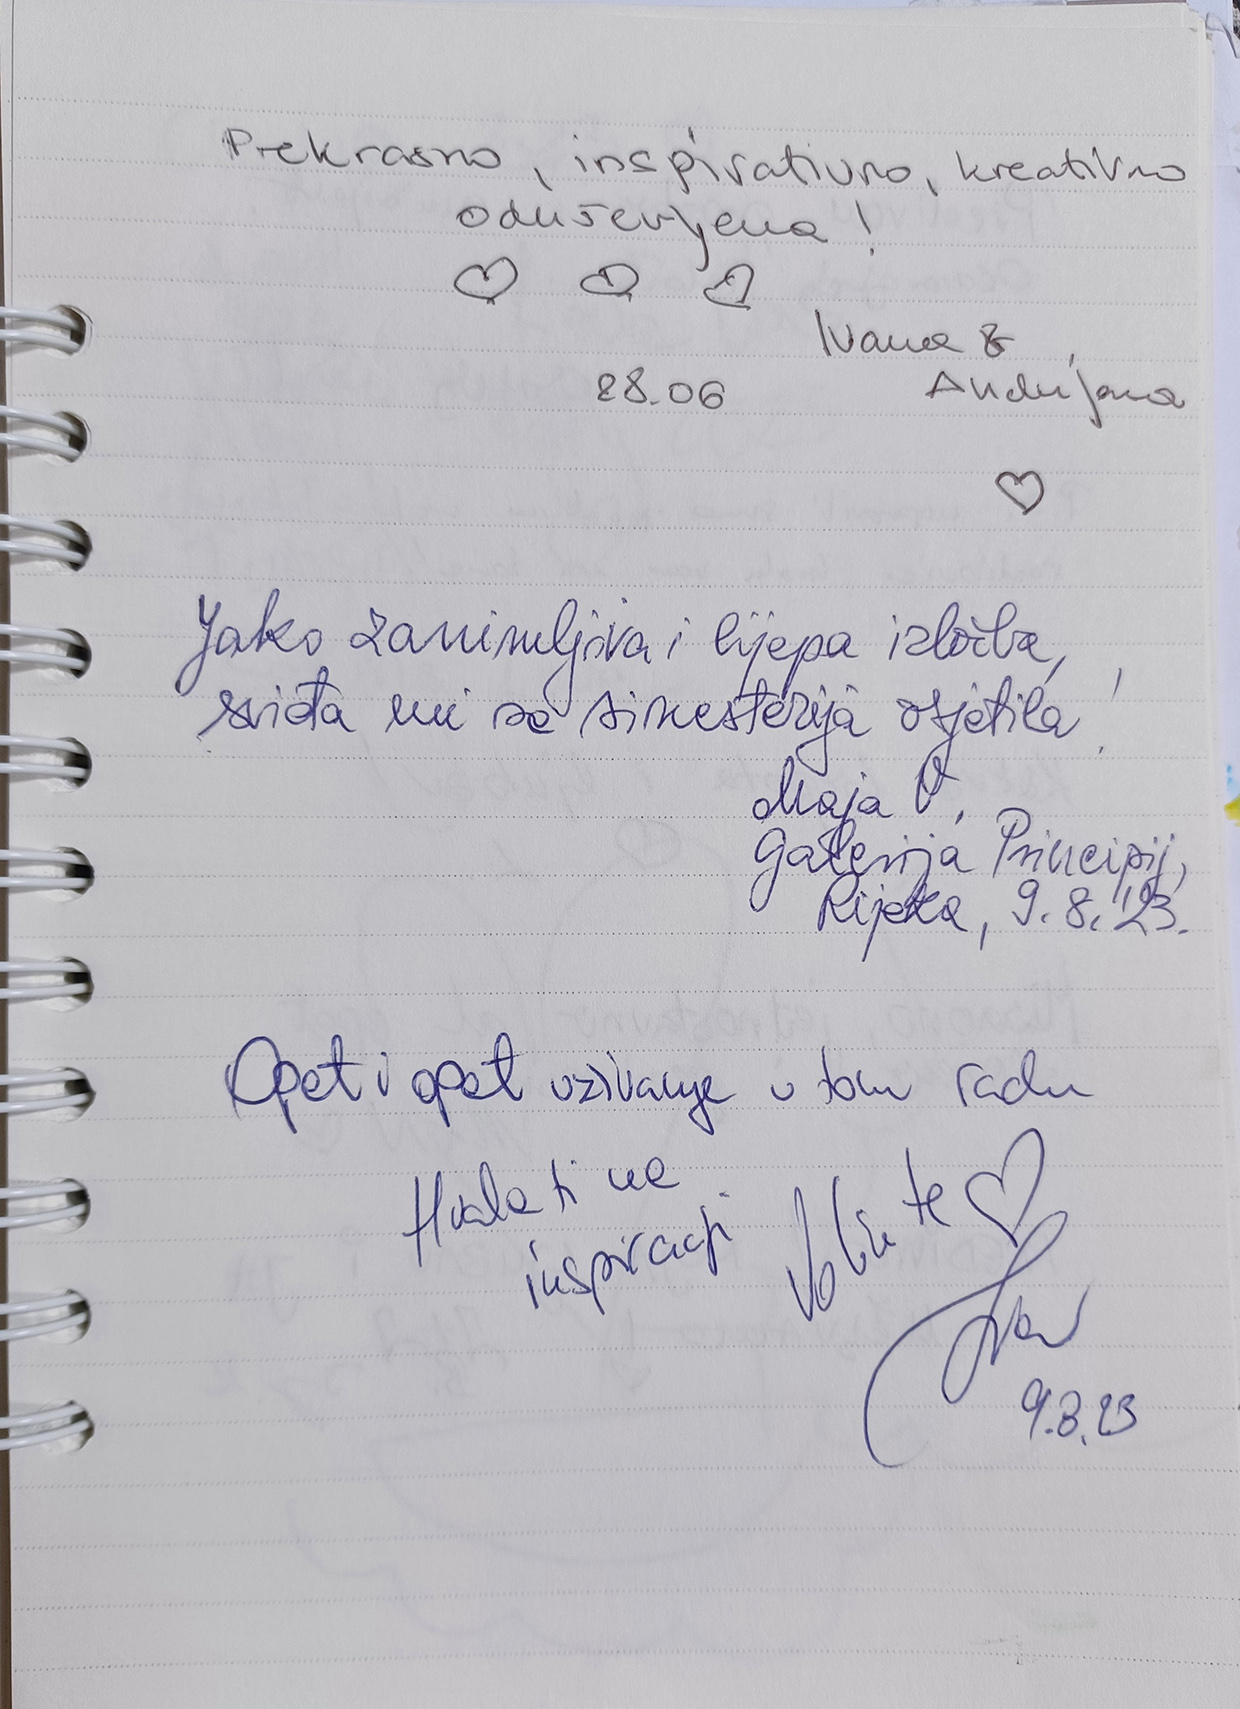 Prekrasno, inspirativno, kreativno
oduševljena!
Ivana &
28.06 Andrijana
Jako zanimljiva i lijepa izložba,
sviđa mi se sinestezija osjetila!
Maja O.
Galerija Principij,
Rijeka, 9.8.'23.
Opet i opet uživanje u tom radu
Hvala ti na
inspiraciji Volim te
9.8.23